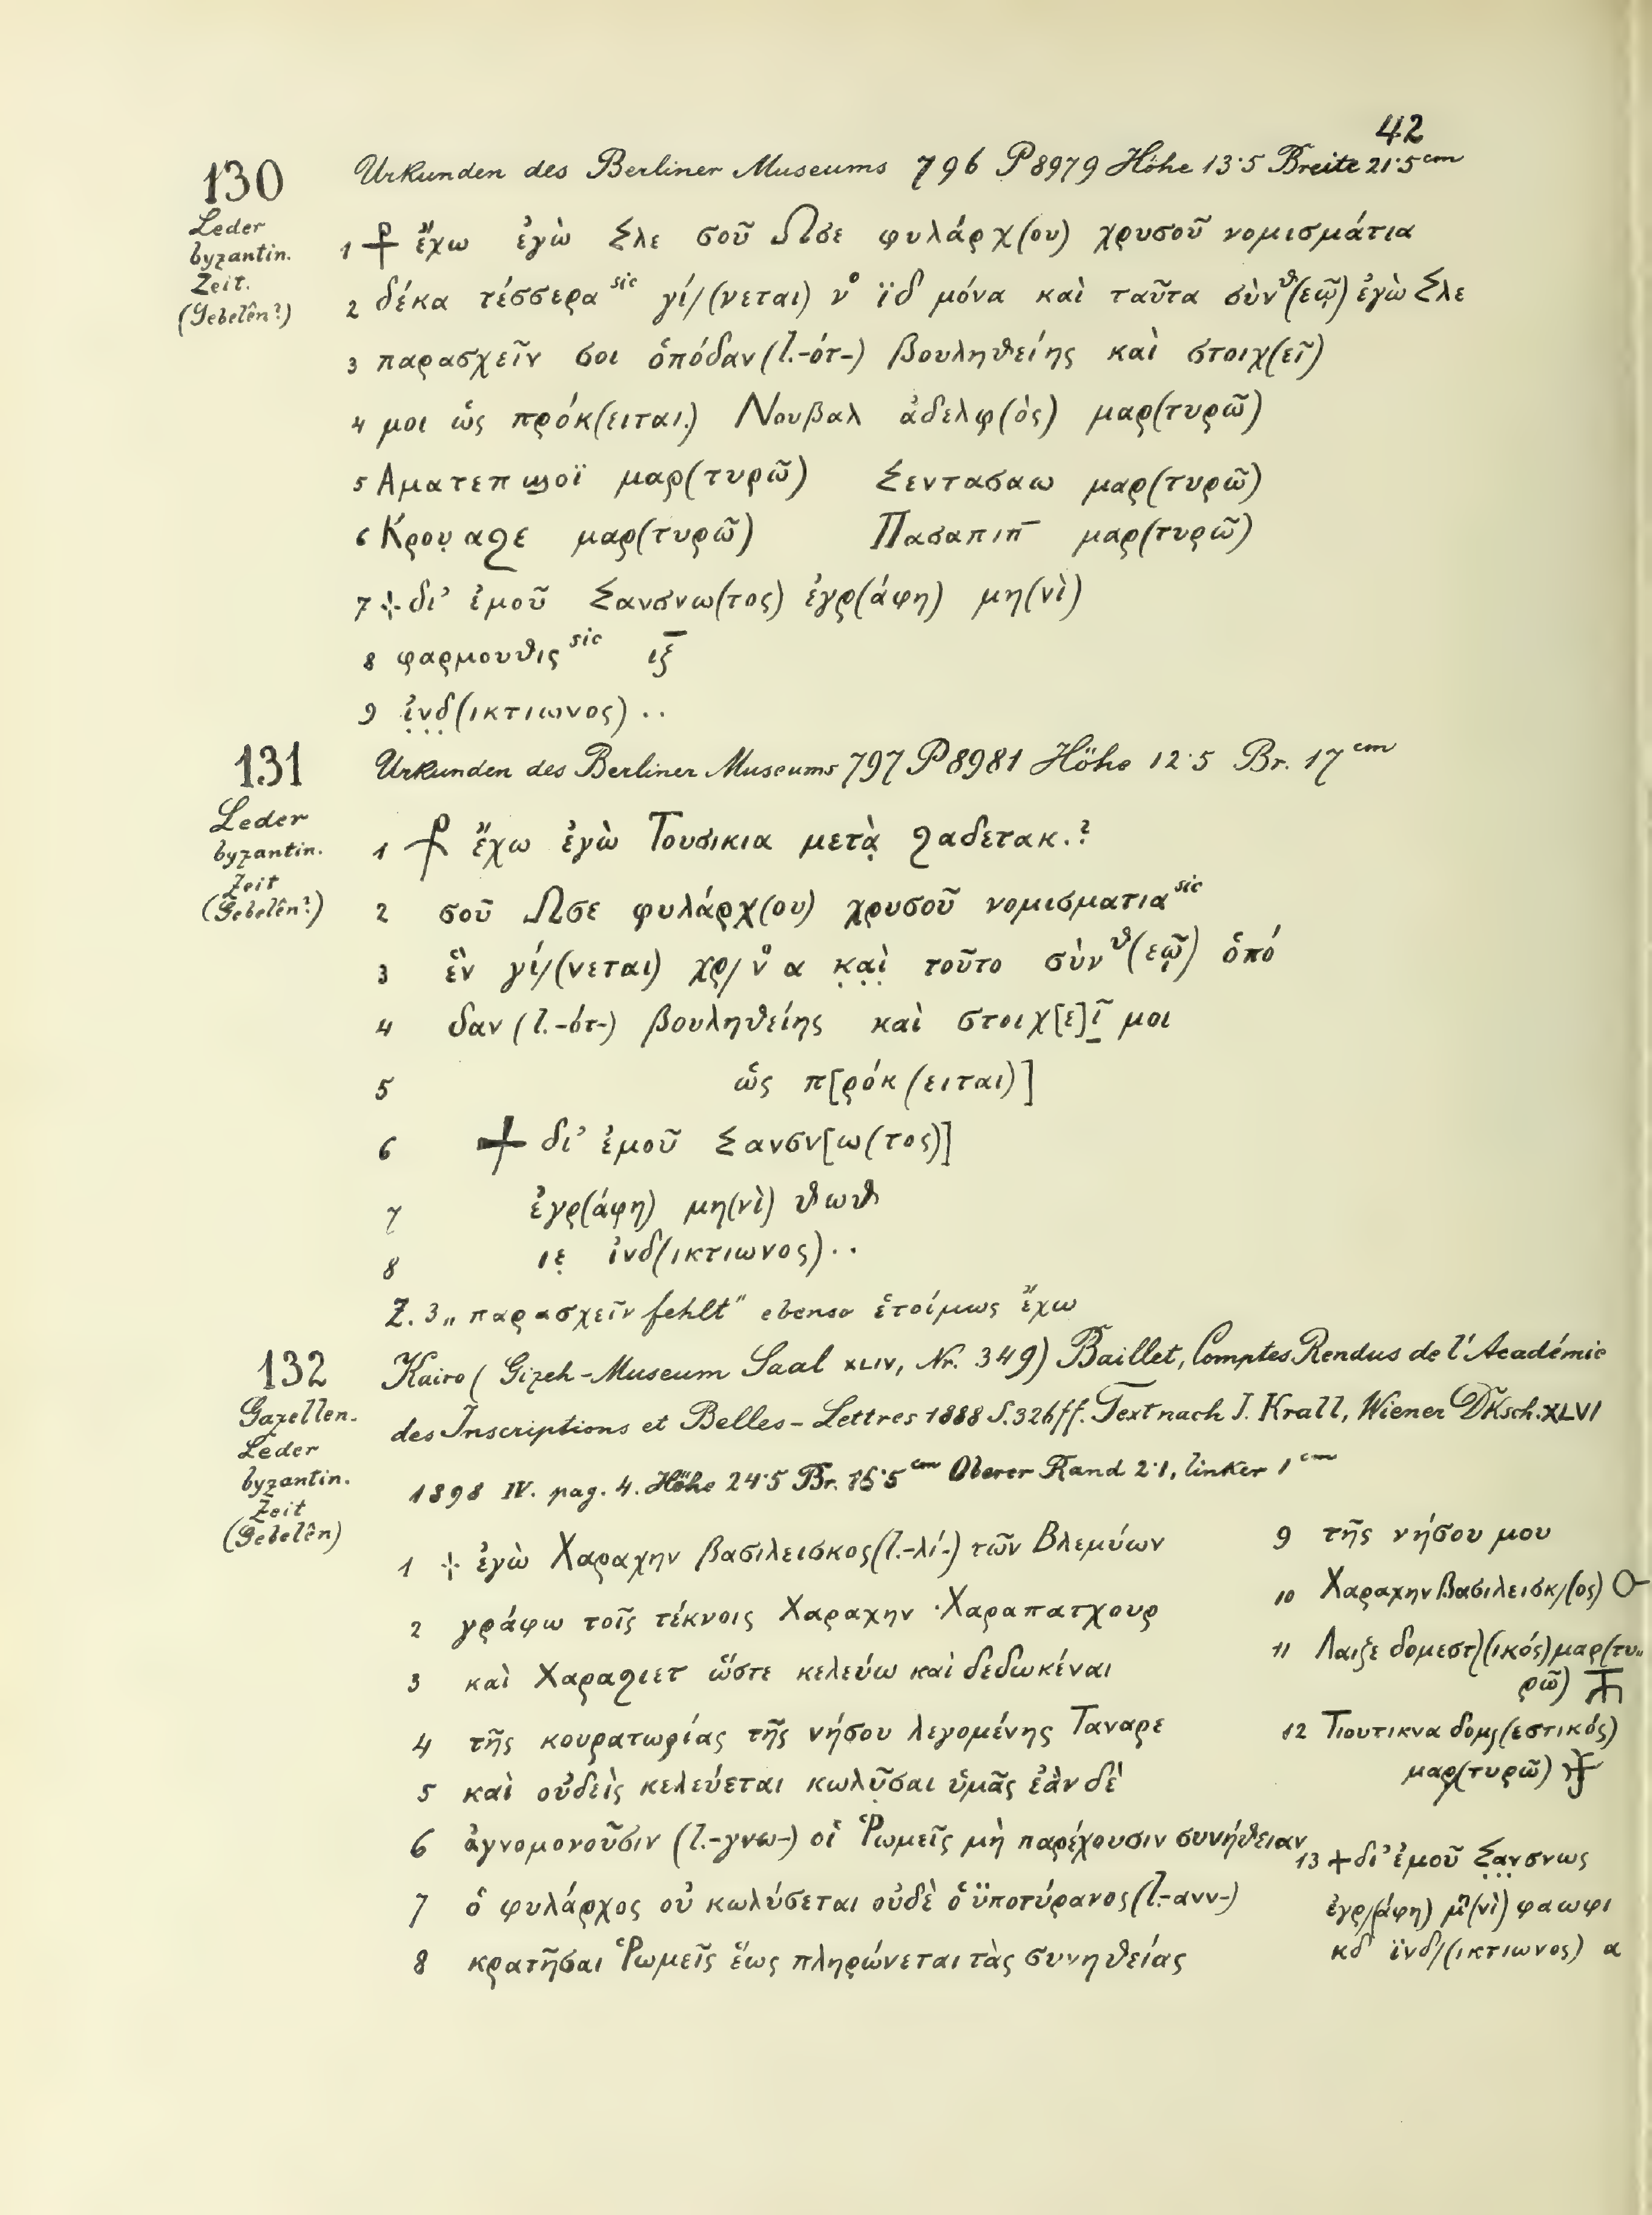 42
130 Urkunden des Berliner Museums 796 P 8979 Höhe 13·5 Breite 21·5 cm
Leder
byzantin.
Zeit.
(Gebelên?)
1 ⳨ ἔχω ἐγὼ Σλε σοῦ Ωσε φυλάρχ(ου) χρυσοῦ νομισμάτια
2 δέκα τέσσερα sic γί/(νεται) νο ϊδ μόνα καὶ ταῦτα σὺν θ(εῷ) ἐγὼ Σλε
3 παρασχεῖν σοι ὁπόδαν (l.-ότ-) βουληθείης καὶ στοιχ(εῖ)
4 μοι ὡς πρόκ(ειται.) Νουβαλ ἀδελφ(ὸς) μαρ(τυρῶ)
5 Αματεπϣοϊ μαρ(τυρῶ) Σεντασαω μαρ(τυρῶ)
6 Κρου̣αϩε μαρ(τυρῶ) Πασαπιπ̅ μαρ(τυρῶ)
7 ⁜ δι’ ἐμοῦ Σανσνω(τος) ἐγρ(άφη) μη(νὶ)
8 φαρμουθις sic ιξ̅
9 ἰ̣ν̣δ̣(ικτιωνος) ..
131 Urkunden des Berliner Museums 797 P 8981 Höhe 12·5 Br. 17 cm
Leder
byzantin.
Zeit
(Gebelên?)
1 ⳨ ἔχω ἐγὼ Τουσικια μετὰ̣ ϩαδετακ.?
2 σοῦ Ωσε φυλάρχ(ου) χρυσοῦ νομισματια sic
3 ἓν γί/(νεται) χρ/ νο α κ̣α̣ὶ̣ τοῦτο σὺν θ(εῷ) ὁπό
4 δαν (l.-ότ-) βουληθείης καὶ στοιχ[ε]ῖ μοι
5 ὡς π[ρόκ(ειται)]
6 + δι’ ἐμοῦ Σανσν[ω(τος)]
7 ἐγρ(άφη) μη(νὶ) θωθ
8 ιε̣ ἰνδ(ικτιωνος) ..
Z. 3 „παρασχεῖν fehlt“ ebenso ἑτοίμως ἔχω
132 Kairo (Gizeh-Museum Saal XLIV, Nr. 349) Baillet, Comptes Rendus de l'Académie
des Inscriptions et Belles-Lettres 1888 S. 326 ff. Text nach J. Krall, Wiener DKsch. XLVI
1898 IV. pag. 4. Höhe 24·5 Br. 16·5 cm Oberer Rand 2·1, linker 1 cm
Gazellen.
Leder
byzantin.
Zeit
(Gebelên)
1 ⁜ ἐγὼ Χαραχην βασιλεισκος (l.-λί-) τῶν Βλεμύων
2 γράφω τοῖς τέκνοις Χαραχην · Χαραπατχουρ
3 καὶ Χαραϩιετ ὥστε κελεύω καὶ δεδωκέναι
4 τῆς κουρατωρίας τῆς νήσου λεγομένης Ταναρε
5 καὶ οὐδεὶς κελεύεται κωλῦσαι ὑμᾶς ἐὰν δὲ
6 ἀγνομονοῦσιν (l.-γνω-) οἱ Ῥωμεῖς μὴ παρέχουσιν συνήθειαν
7 ὁ φυλάρχος οὐ κωλύσεται οὐδὲ ὁ ϋποτύρανος (l.-ανν-)
8 κρατῆσαι Ῥωμεῖς ἕως πληρώνεται τὰς συνηθείας
9 τῆς νήσου μου
10 Χαραχην Βασιλεισκ/(ος)
11 Λαιζε δομεστ/(ικός) μαρ(τυ„
ρῶ)
12 Τιουτικνα δομ(εστικός)
μαρ(τυρῶ)
13 + δι’ ἐμοῦ Σ̣α̣ν̣σνως
ἐγρ/(άφη) μη(νὶ) φαωφι
κδ ϊνδ/(ικτιωνος) α